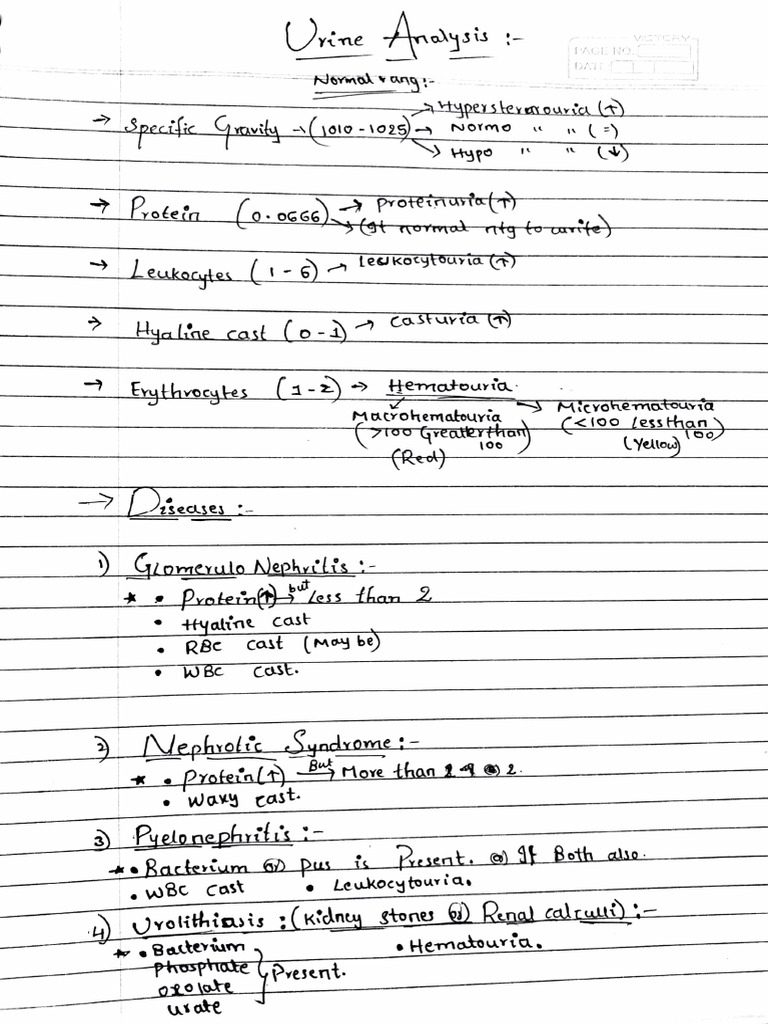 Urine Analysis :-
VICTORY
PAGE NO.
DATE
Normal rang:-
→ Specific Gravity → (1010 - 1025) → Hypersternouria (↑)
→ Normo " " (=)
→ Hypo " " (↓)
→ Protein (0.0666) → Proteinuria (↑)
→ (If normal ntg to write)
→ Leukocytes (1 - 6) → leukocytouria (↑)
→ Hyaline cast (0 - 1) → casturia (↑)
→ Erythrocytes (1 - 2) → Hematouria.
Macrohematouria → Microhematouria
(>100 Greater than 100) (<100 less than 100)
(Red) (Yellow)
→ Diseases :-
1) Glomerulo Nephritis :-
* • Protein (↑) but → Less than 2
• Hyaline cast
• RBC cast (May be)
• WBC cast.
2) Nephrotic Syndrome :-
* • Protein (↑) But → More than 2.
• Waxy cast.
3) Pyelonephritis :-
* • Bacterium (or) pus is Present. (or) If Both also.
• WBC cast • Leukocytouria.
4) Urolithiasis : (kidney stones (or) Renal calculli) :-
* • Bacterium • Hematouria.
phosphate } Present.
oxolate
urate